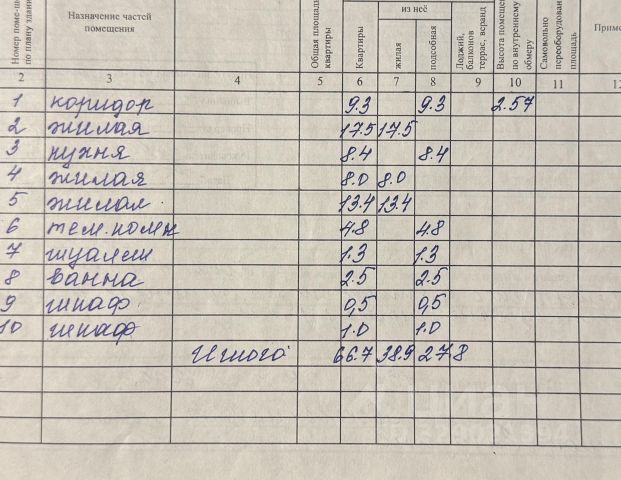 Номер поме-
по плану здан
Назначение частей
помещения
Общая площадь
квартиры
Квартиры
из неё
жилая
подсобная
Лоджий,
балконов
террас, веранд
Высота помеще
по внутреннему
обмеру
Самовольно
переоборудован
площадь
Приме
2 3 4 5 6 7 8 9 10 11 12
1 коридор 9.3 9.3 2.57
2 жилая 17.5 17.5
3 кухня 8.4 8.4
4 жилая 8.0 8.0
5 жилая 13.4 13.4
6 тем. комн 4.8 4.8
7 туалет 1.3 1.3
8 ванна 2.5 2.5
9 шкаф 0,5 0,5
10 шкаф 1.0 1.0
Итого 66.7 38.9 27 8